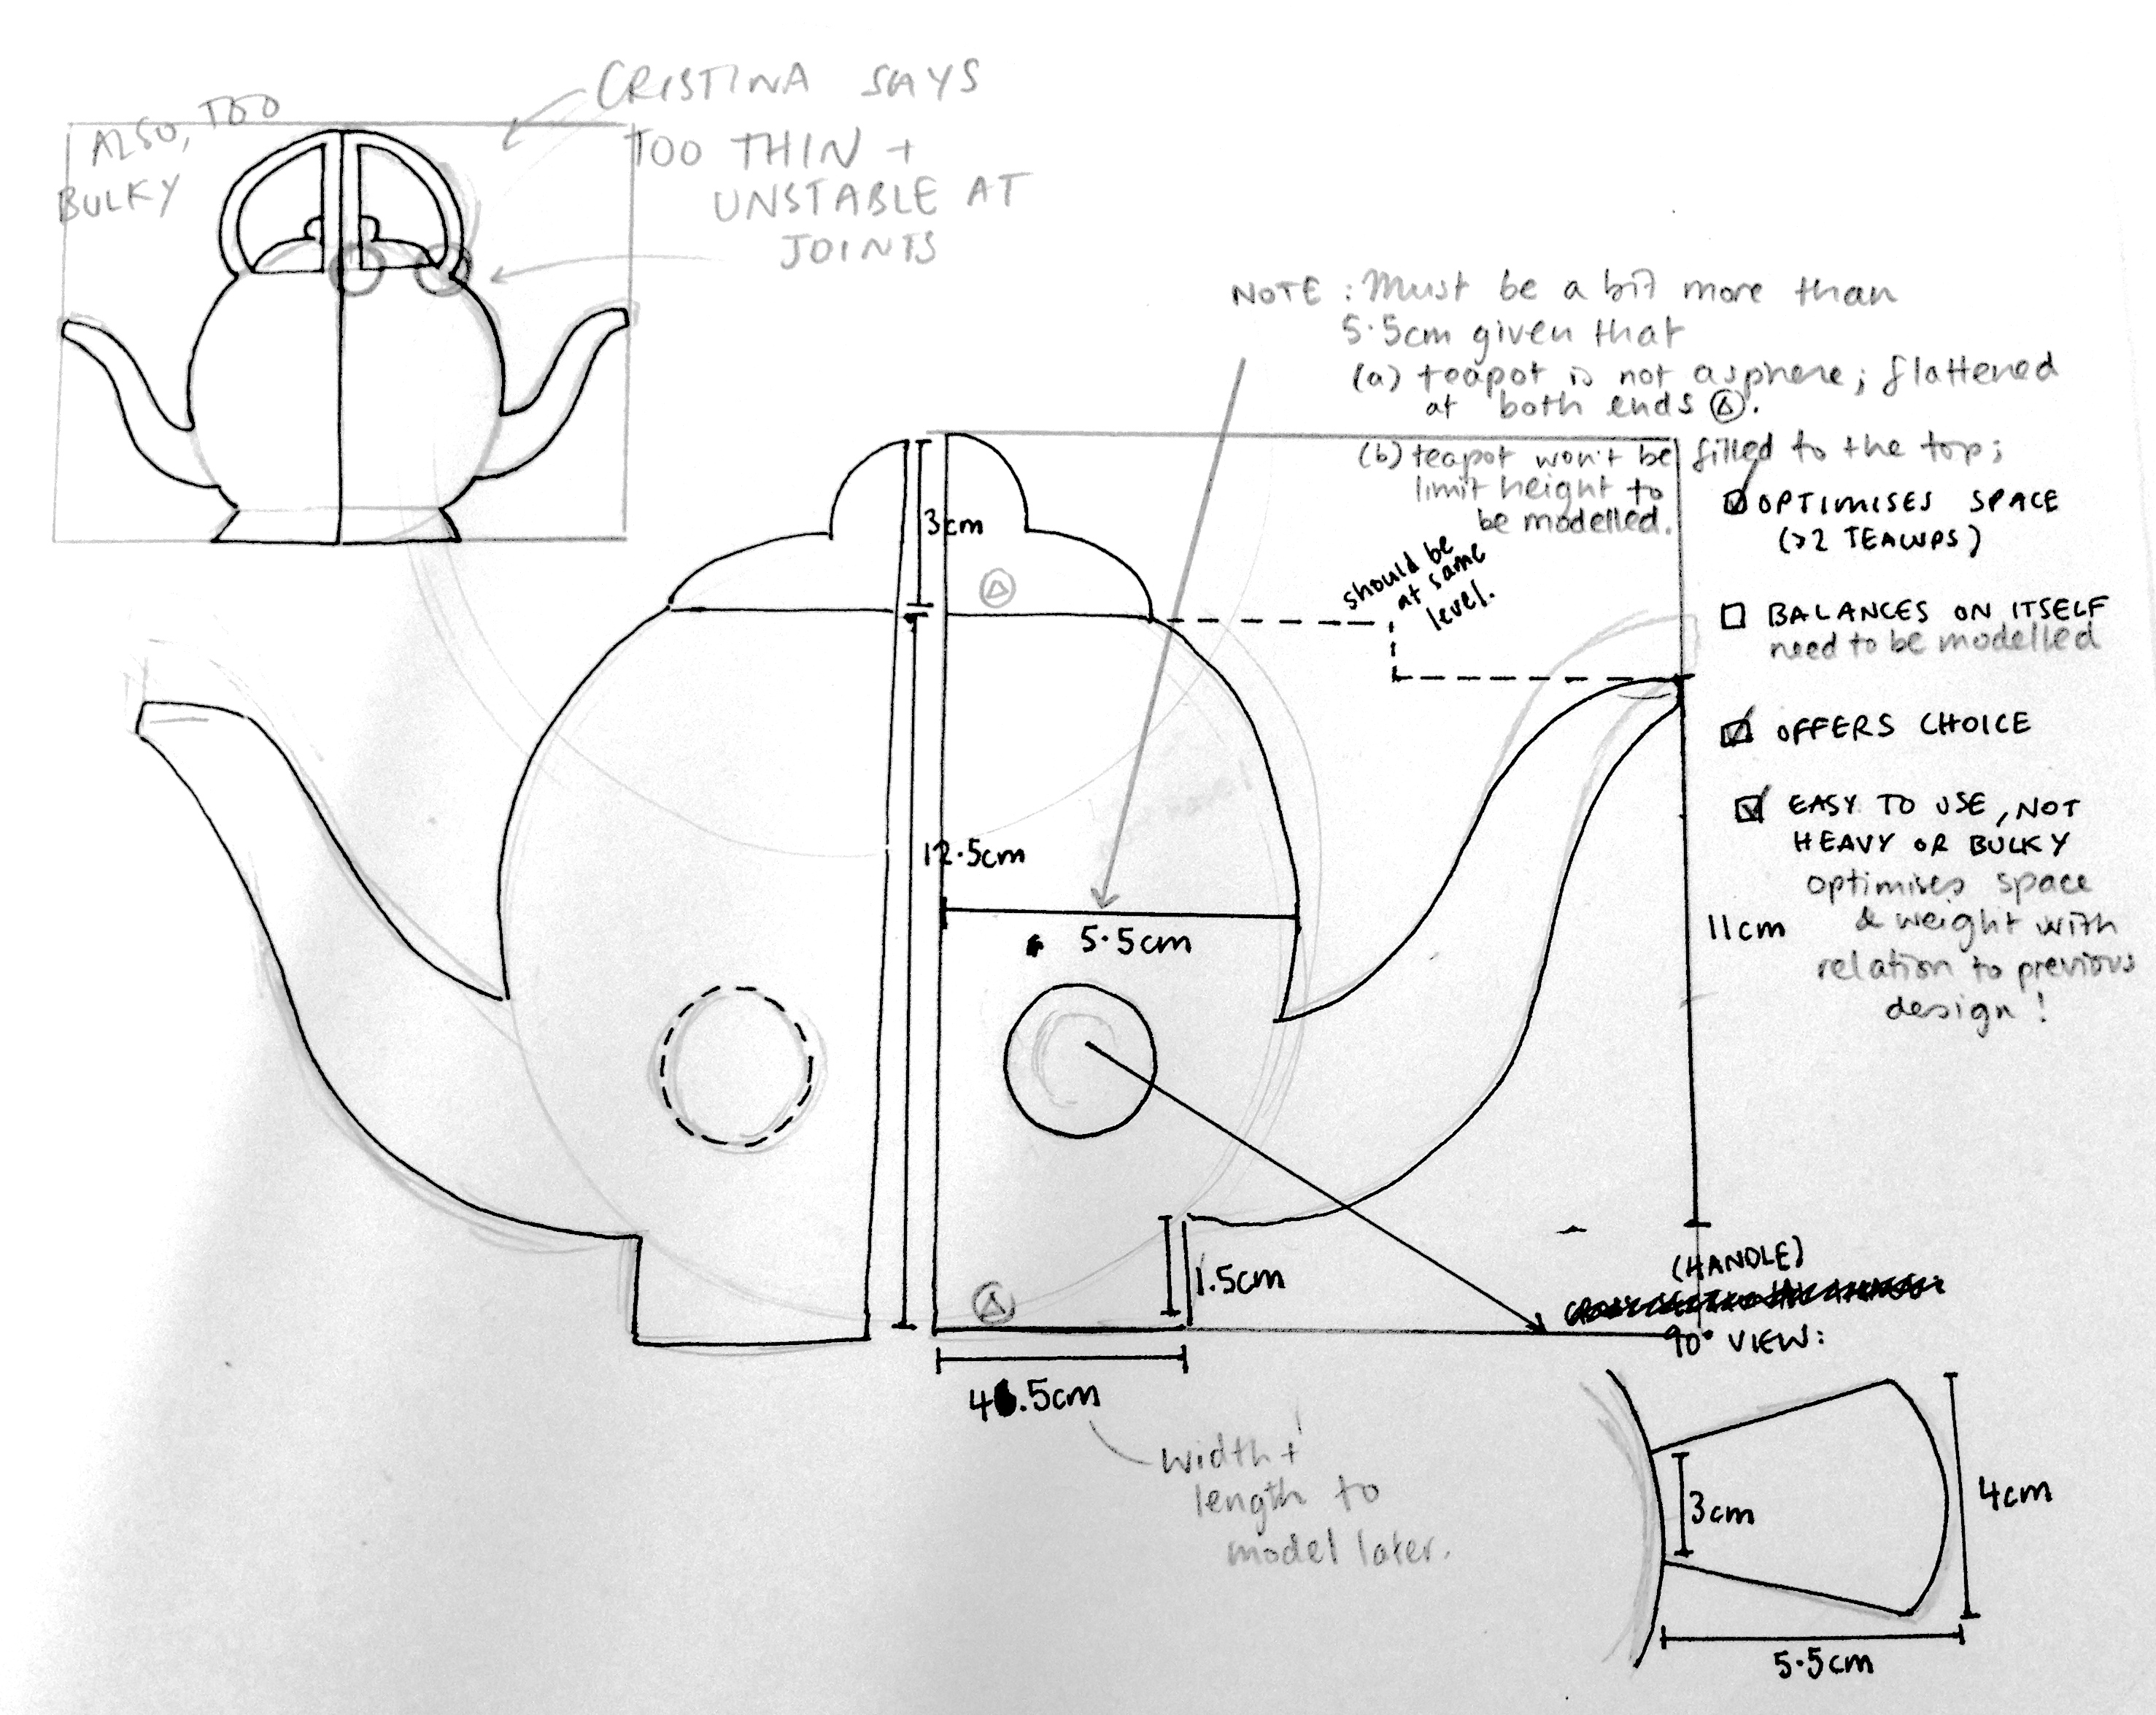 ALSO, TOO
BULKY
CRISTINA SAYS
TOO THIN +
UNSTABLE AT
JOINTS
NOTE : Must be a bit more than
5.5cm given that
(a) teapot is not a sphere; flattened
at both ends △.
(b) teapot won't be filled to the top;
limit height to
be modelled.
should be
at same
level.
☑ OPTIMISES SPACE
(>2 TEACUPS)
☐ BALANCES ON ITSELF
need to be modelled
☑ OFFERS CHOICE
☑ EASY TO USE, NOT
HEAVY OR BULKY
optimises space
& weight with
relation to previous
design!
3cm
△
12.5cm
5.5cm
11cm
1.5cm
△
4.5cm
width +
length to
model later.
(HANDLE)
90° VIEW:
3cm
4cm
5.5cm